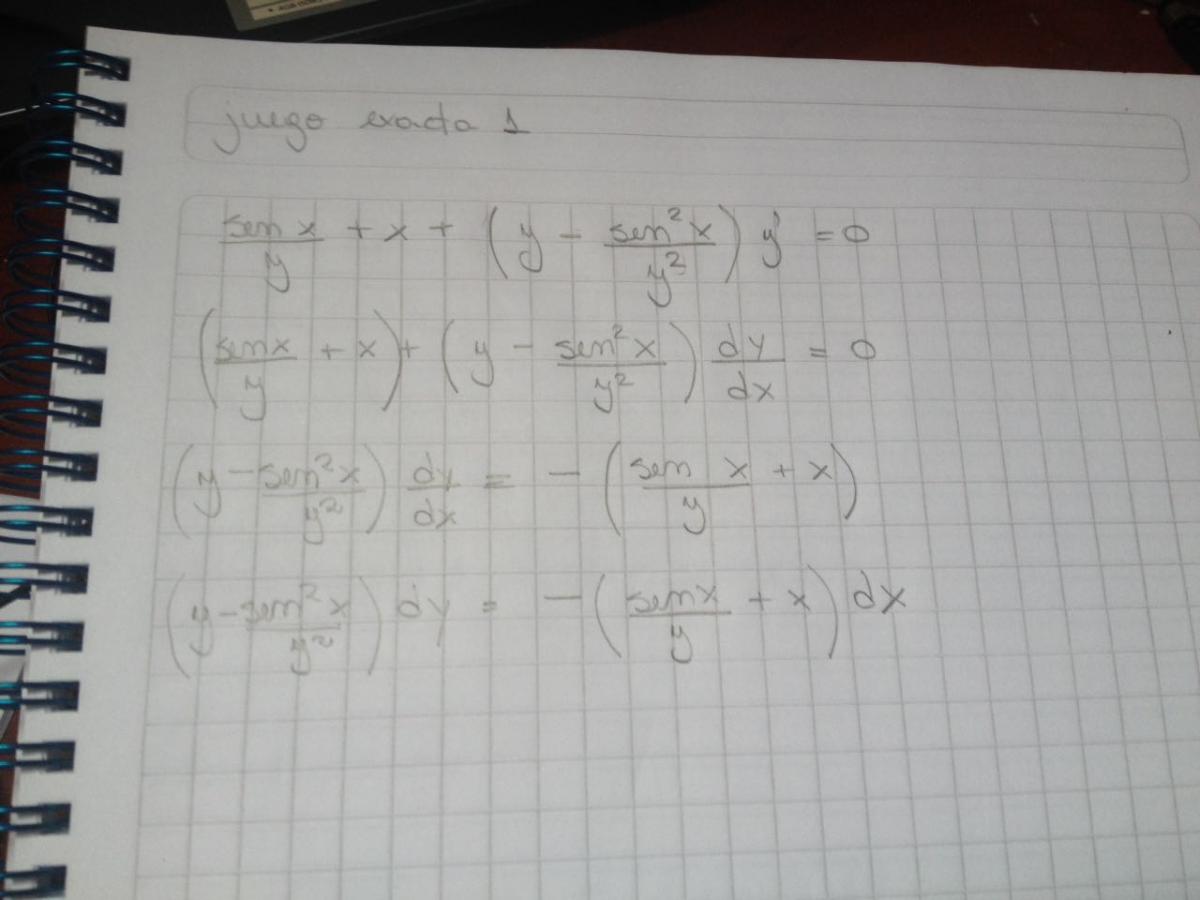 juego exacta 1
sen x / y + x + ( y - sen² x / y² ) y' = 0
( senx / y + x ) + ( y - sen² x / y² ) dy / dx = 0
( y - sen² x / y² ) dy / dx = - ( sen x / y + x )
( y - sen² x / y² ) dy = - ( senx / y + x ) dx